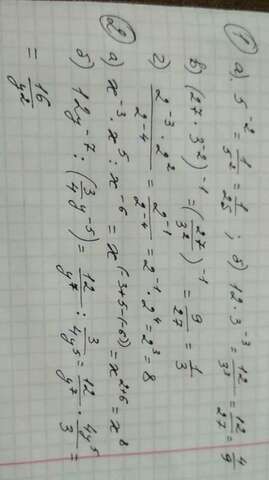 ①
а). 5⁻² = 1/5² = 1/25 ; б) 12 · 3⁻³ = 12/3³ = 12/27 = 4/9
в) (27 · 3⁻²)⁻¹ = (27/3²)⁻¹ = 9/27 = 1/3
г) 2⁻³ · 2²/2⁻⁴ = 2⁻¹/2⁻⁴ = 2⁻¹ · 2⁴ = 2³ = 8
②
а) x⁻³ · x⁵ : x⁻⁶ = x⁽⁻³⁺⁵⁻⁽⁻⁶⁾⁾ = x²⁺⁶ = x⁸
б) 12y⁻⁷ : (3/4 y⁻⁵) = 12/y⁷ : 3/4y⁵ = 12/y⁷ · 4y⁵/3 =
= 16/y²